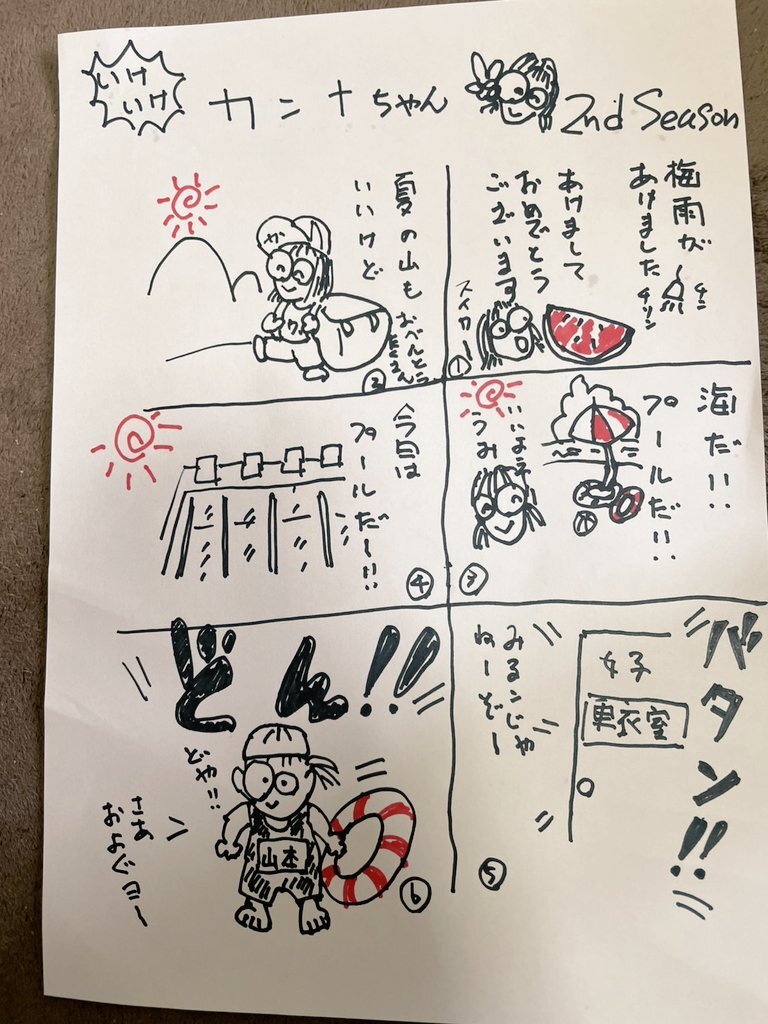 いけ
いけ
カンナちゃん
2nd Season
梅雨が
あけました
チリン
チリン
あけまして
おめでとう
ございます
スイカー
①
夏の山も
いいけど
おべんとう
たくさん
カ
②
海だ!!
プールだ!!
いいよネ
うみ
③
今日は
プールだー!!
④
バタン!!
女子
更衣室
みるンじゃ
ねーぞー
⑤
どん!!
どや!!
山本
さあ
およぐヨー
⑥